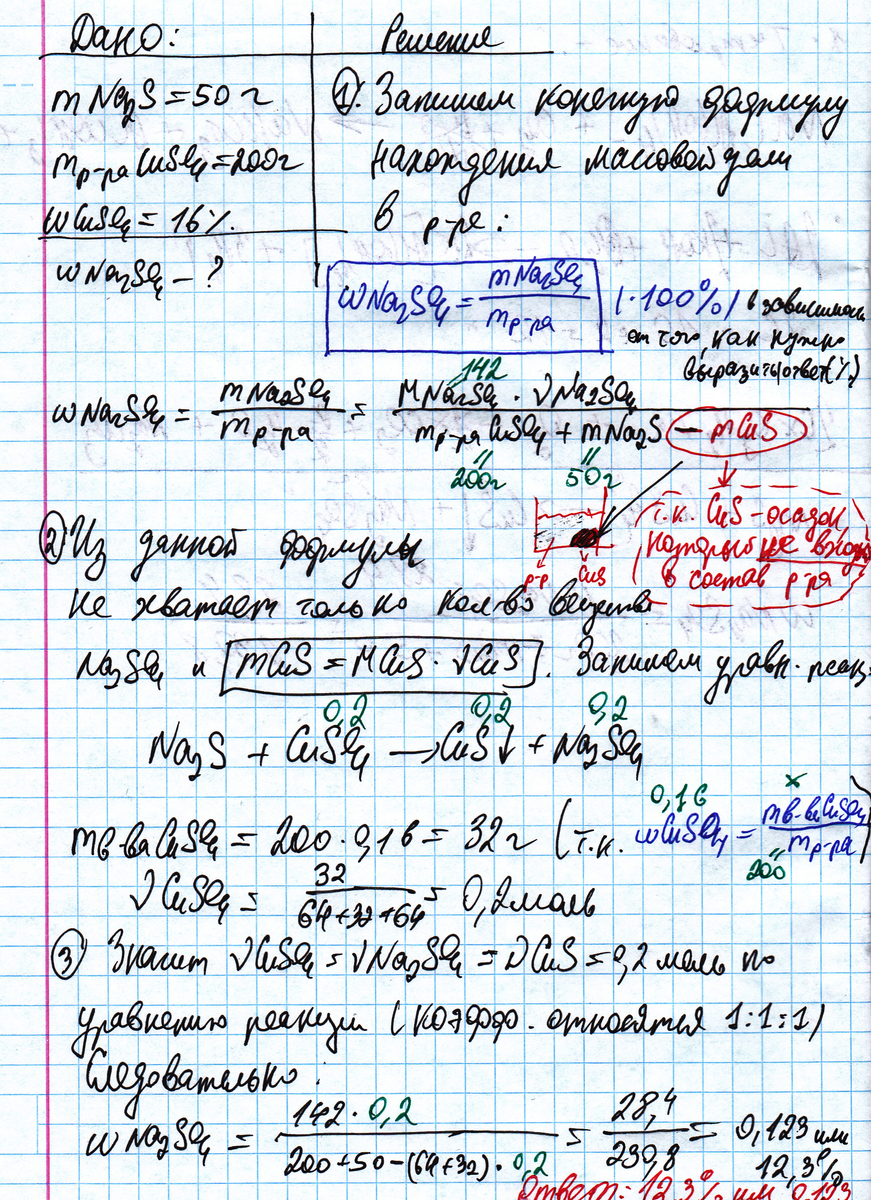 Дано:
Решение
m Na₂S = 50 г
mр-ра CuSO₄ = 200г
ωCuSO₄ = 16%.
ωNa₂SO₄ – ?
① Запишем конечную формулу
нахождения массовой доли
в р-ре:
ωNa₂SO₄ = mNa₂SO₄ / mр-ра (·100%) в зависимости
от того, как нужно
выразить ответ (%)
142
ωNa₂SO₄ = mNa₂SO₄ / mр-ра = MNa₂SO₄ · νNa₂SO₄ / mр-ра CuSO₄ + mNa₂S – mCuS
200г
50г
т.к. CuS – осадок,
который не входит
в состав р-ра
р-р
CuS
② Из данной формулы
не хватает только кол-во вещества
Na₂SO₄ и mCuS = MCuS · νCuS. Запишем уравн. реакц.
0,2 0,2 0,2
Na₂S + CuSO₄ → CuS↓ + Na₂SO₄
mв-ва CuSO₄ = 200 · 0,16 = 32 г (т.к. ωCuSO₄ = mв-ва CuSO₄ / mр-ра)
0,16
x
200
νCuSO₄ = 32 / 64+32+64 = 0,2 моль
③ Значит νCuSO₄ = νNa₂SO₄ = νCuS = 0,2 моль по
уравнению реакции (коэфф. относятся 1:1:1)
Следовательно:
ωNa₂SO₄ = 142 · 0,2 / 200+50–(64+32)·0,2 = 28,4 / 230,8 = 0,123 или
12,3%
Ответ: 12,3% или 0,123